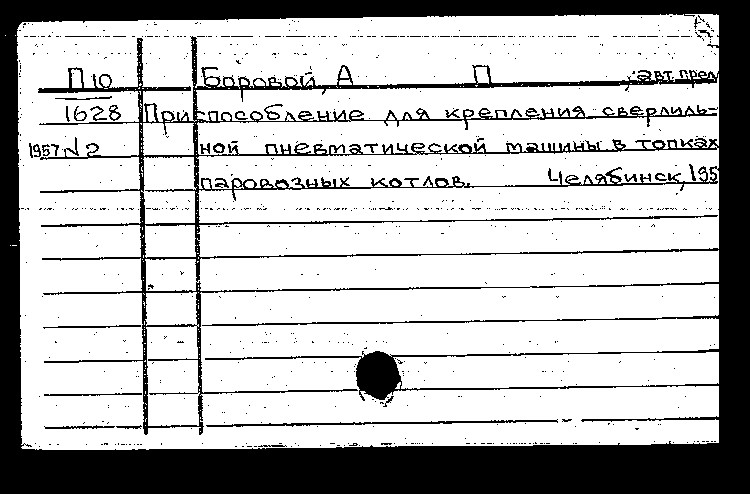 П10 Боровой, А П , авт. пред
1628 Приспособление для крепления сверлиль-
1957 №2 ной пневматической машины в топках
паровозных котлов. Челябинск, 195